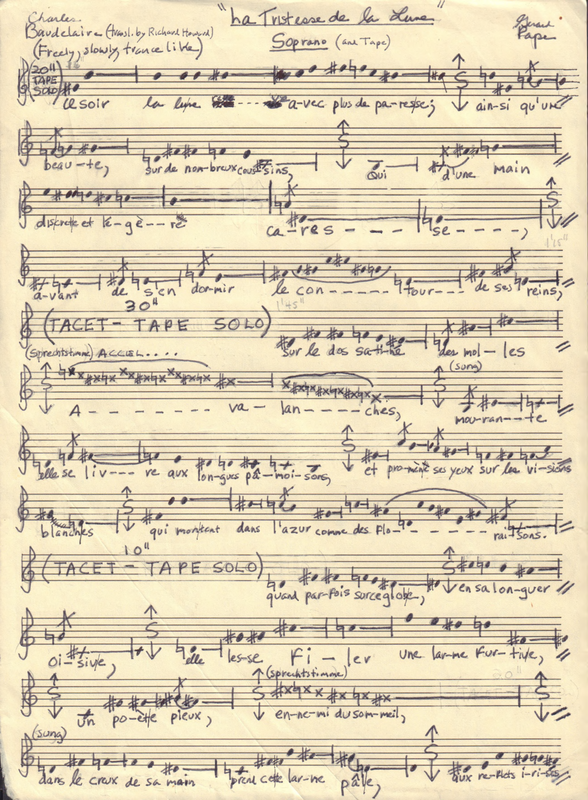 Charles Baudelaire (transl. by Richard Howard)
"La Tristesse de la Lune"
Gerard Pape
Soprano (and Tape)
(Freely, slowly, trance like)
(20" TAPE SOLO)
Ce soir la lune a-vec plus de pa-resse; ain-si qu'une
beau-té, sur de nom-breux cous-sins, Qui d'une main
discrète et lé-gè---re ca-res---- se----,
1'25"
a-vant de s'en dor-mir le con----- tour-- de ses reins,
30"
1'45"
(TACET- TAPE SOLO) sur le dos sa-ti-né des mol-les
(sprechtstimme) ACCEL.... (sung)
A------- va-lan----ches, mou-ran--te
elle se liv---re aux lon-gues pâ-moi-sons, et promène ses yeux sur les vi-sions
blanches qui montent dans l'azur comme des flo------- rai-sons.
10"
(TACET- TAPE SOLO) quand par-fois sur ce globe, en sa lon-guer
Oi-sive, elle les-se Fi-ler une lar-me fur-tive,
(sprechtstimme)
Un po-ète pieux, en-ne-mi du som-meil,
(sung)
dans le creux de sa main prend cette lar-me pâle, aux re-flets i-ri-sés